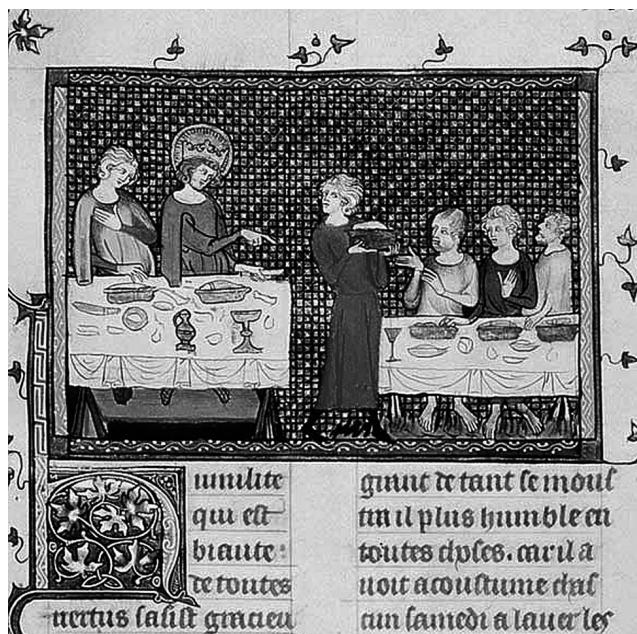 Humilite
qui est
biaute :
de toutes
uertus sasist gracieu
grant de tant se mous
tra il plus humble en
toutes choses. car il a
uoit acoustume chas
cun samedi a lauer les